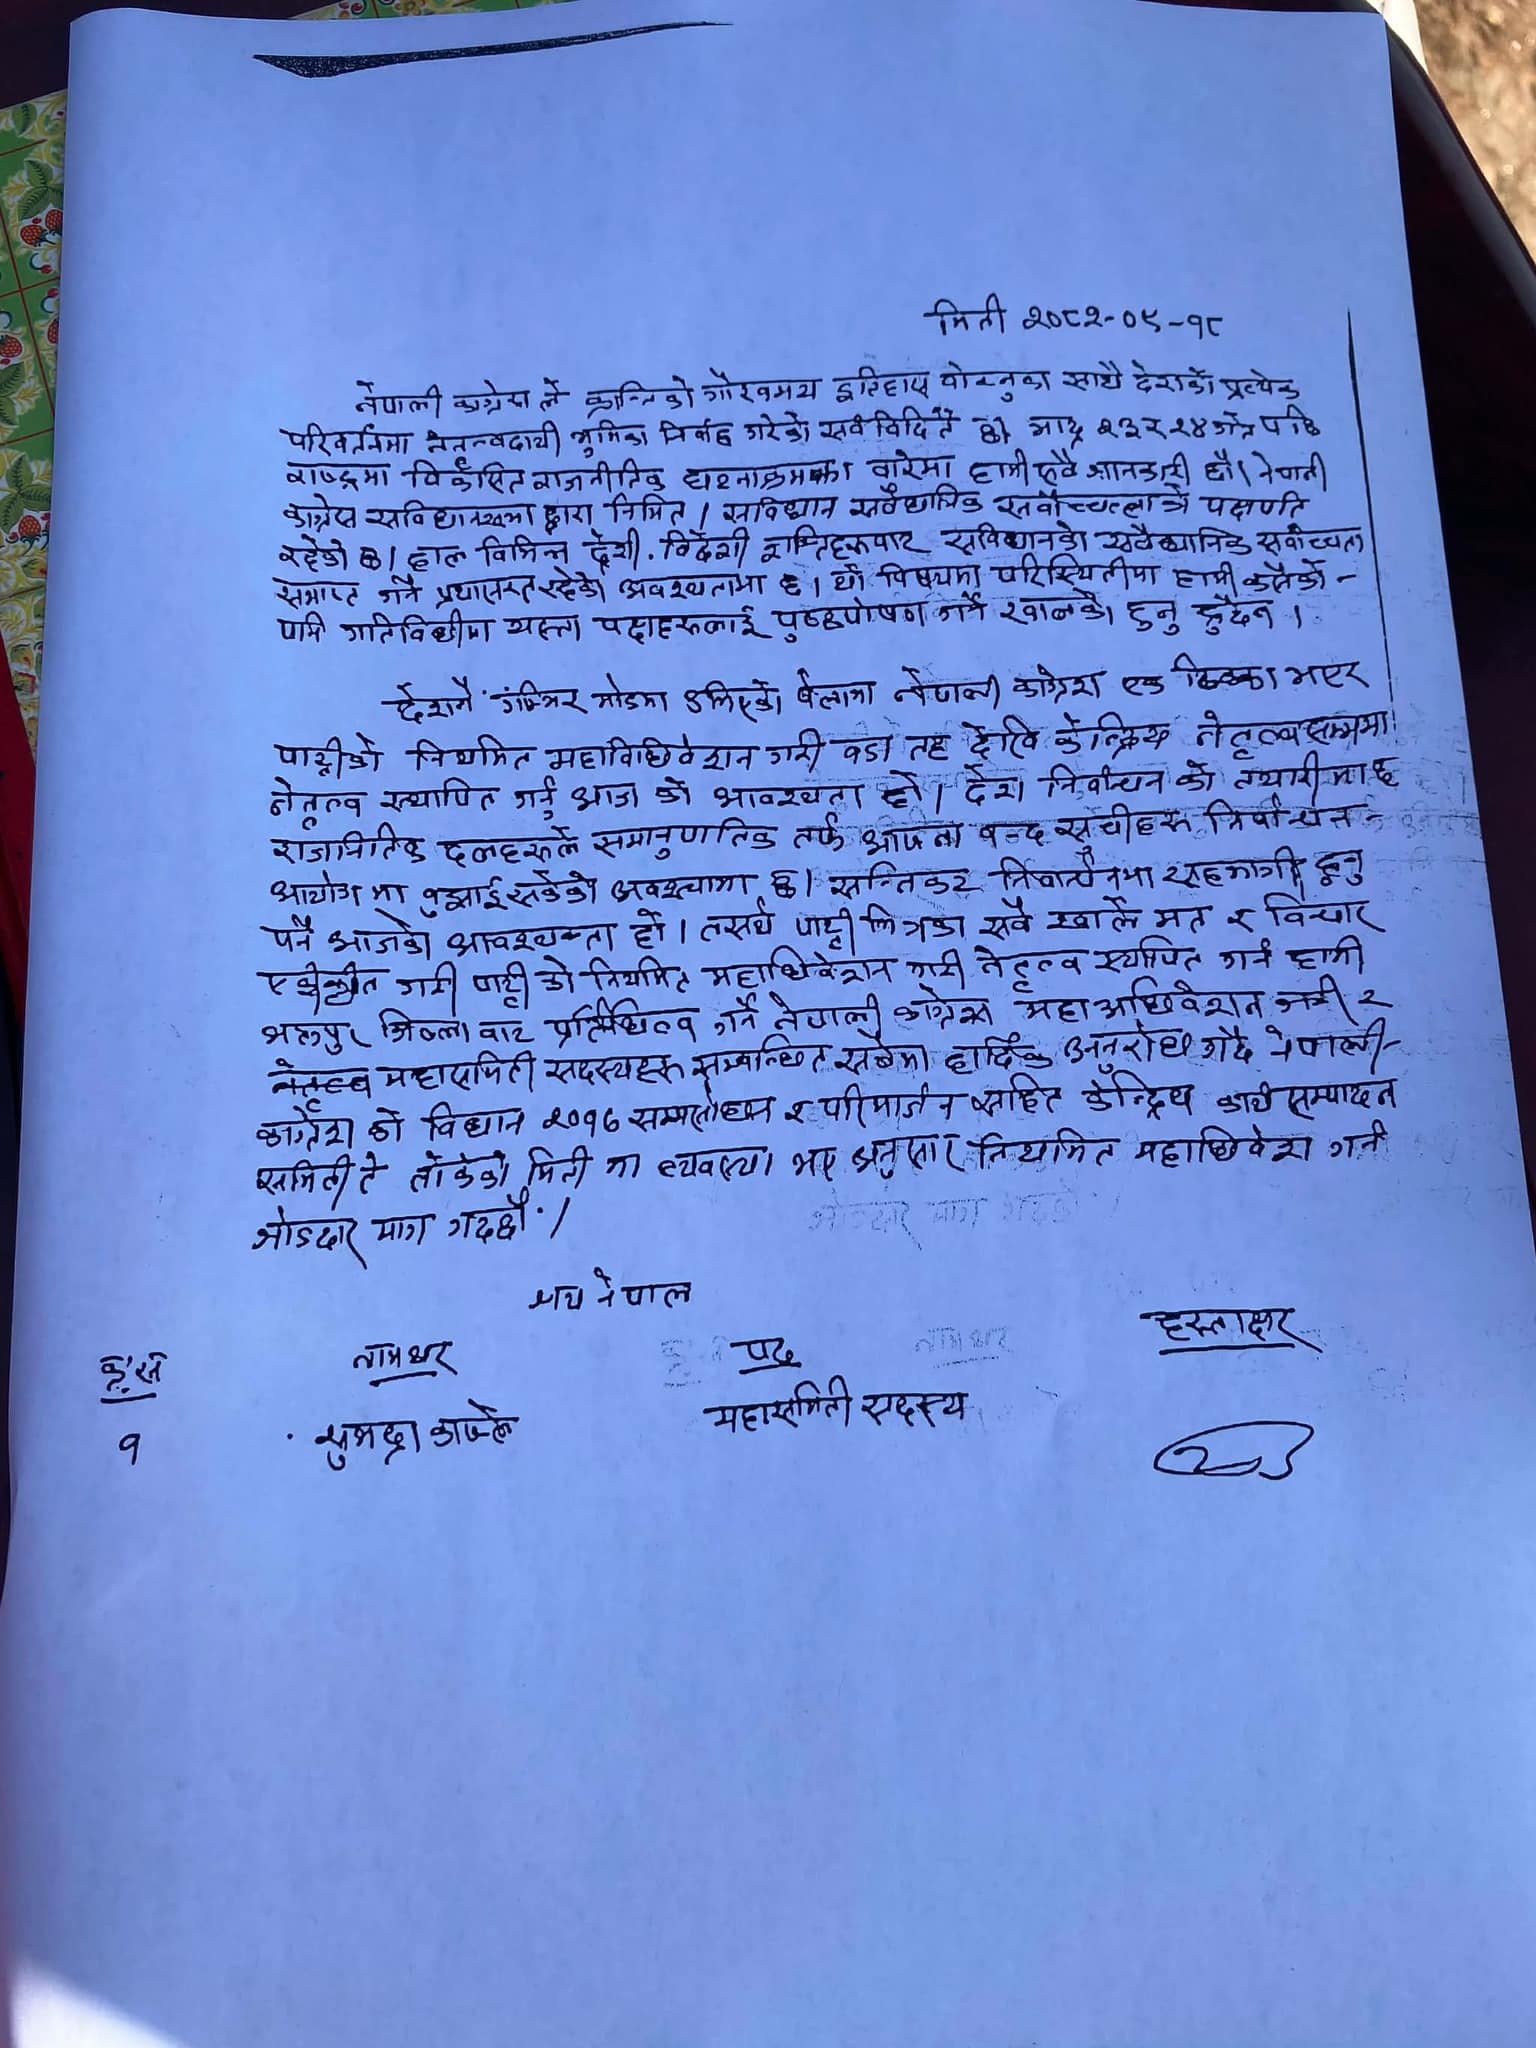 मिती २०८२-०९-१८
नेपाली काग्रेस ले क्रान्तिको गौरवमय इतिहास बोक्नुका साथै देशको प्रत्येक
परिवर्तनमा नेतृत्वदायी भुमिका निर्वाह गरेको सर्व विदितै छ। भाद्र २३ र २४ गते पछि
राष्ट्रमा विकसित राजनीतिक घटनाक्रमका बारेमा हामी सवै जानकारी छौ। नेपाली
काग्रेस सविधानसभा द्वारा निमित। सविधान सवैधानिक सर्वोच्चत्ता को पक्षपाति
रहेको छ। हाल विभिन्न देशी. विदेशी शक्तिहरुवाट सविधानको सवैधानिक सर्वोच्चता
समाप्त गर्ने प्रयासरत रहेको अवश्थतामा छ। यो विषयमा परिस्थितीमा हामी कसैको-
पनि गतिविधीमा यस्ता पक्षहरुलाई पृष्ठपोषण गर्ने खालको हुनु हुदैन।
देशनै गंम्भिर मोडमा उभिएको बेलामा नेपाली काग्रेश एक ढिक्का भएर
पार्टीको नियमित महाधिवेशन गरी वडा तह देखि केन्द्रिय नेतृत्व सम्ममा
नेतृत्व स्थापित गर्नु आज को आवश्यता हो। देश निर्वाचन को तयारीमा छ
राजनितिक दलहरुले समानुपातिक तर्फ आफ्ना बन्द सूचीहरु निर्वाचन-
आयोग मा वुझाई सकेको अवस्थामा छ। सन्निकट निर्वाचनमा सहभागी हुनु
पर्ने आजको आवश्यक्ता हो। तसर्थ पार्टी भित्रका सवै खाले मत र विचार
एकीकृत गरी पार्टी को नियमित महाधिवेशन गरी नेतृत्व स्थापित गर्न हामी
भक्तपुर जिल्ला वाट प्रतिनिधित्व गर्ने नेपाली काग्रेस महा अधिवेशन गरी र
नेतृत्व महासमिती सदस्यहरु सम्वन्धित सबैमा हार्दिक अनुरोध गर्दै नेपाली-
काग्रेश को विधान २०१७ सम्मसोधन र परिमार्जन सहित केन्द्रिय कार्य सम्पादन
समिती ले तोकेको मिती मा व्यवस्था भए अनुसार नियमित महाधिवेश गर्न
जोडदार माग गर्दछौ।
जय नेपाल
क्र.स नामथर पद हस्ताक्षर
१ सुभद्रा काफ्ले महासमिती सदस्य